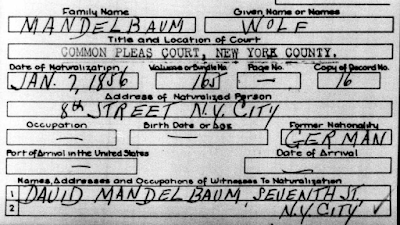 Family Name Given Name or Names
MANDELBAUM WOLF
Title and Location of Court
COMMON PLEAS COURT, NEW YORK COUNTY.
Date of Naturalization Volume or Bundle No. Page No. Copy of Record No.
JAN. 7, 1856 165 — 16
Address of Naturalized Person
8th STREET N.Y. CITY
Occupation Birth Date or Age Former Nationality
— — GERMAN
Port of Arrival in the United States Date of Arrival
— —
Names, Addresses and Occupations of Witnesses To Naturalization
1 DAVID MANDELBAUM, SEVENTH ST,
2 N.Y. CITY ✓